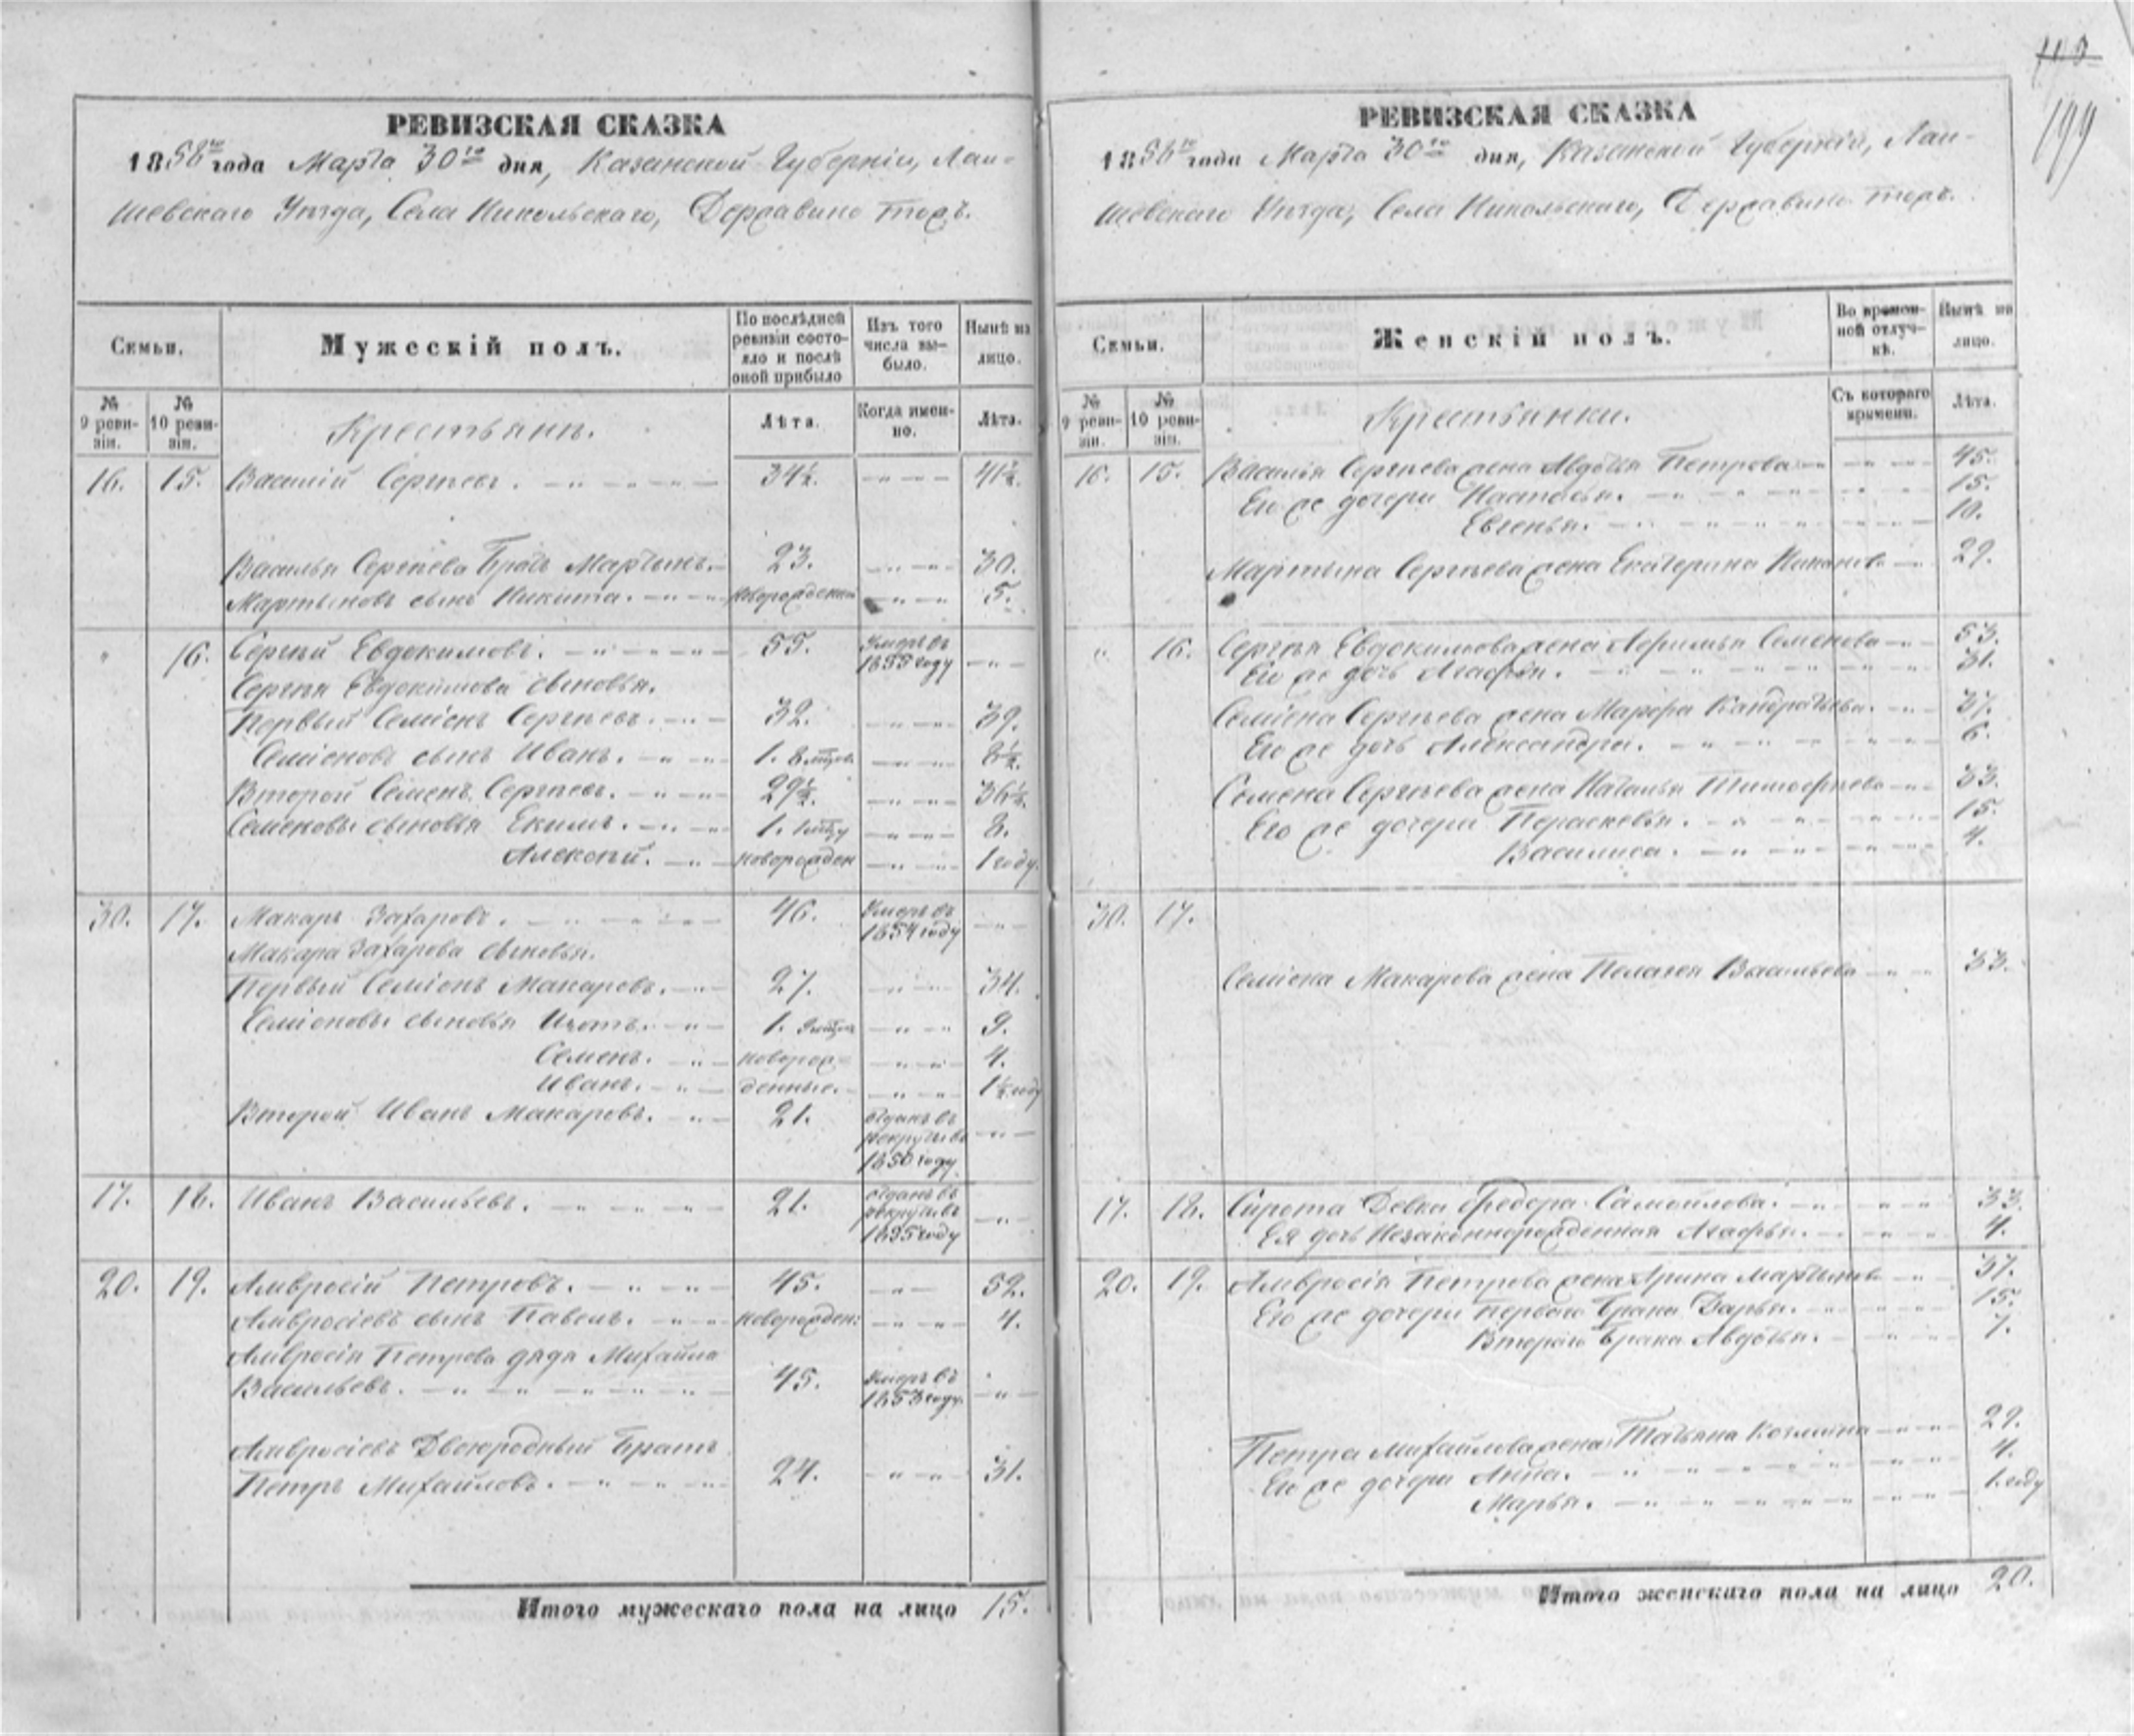 РЕВИЗСКАЯ СКАЗКА
1858го года Марта 30го дня, Казанской Губерніи, Лаи-
шевскаго Уѣзда, Села Никольскаго, Державино тожъ.
Семьи.
Мужескій полъ.
По послѣдней ревизіи состо-яло и послѣ оной прибыло
Изъ того числа вы-было.
Нынѣ на лицо.
№ 9 реви-зіи.
№ 10 реви-зіи.
Крестьяне.
Лѣта.
Когда имен-но.
Лѣта.
16. 15. Василій Сергѣевъ. 34½. 41½.
Василья Сергѣева Братъ Мартынъ. 23. 30.
Мартыновъ сынъ Никита. новорожденный 5.
" 16. Сергѣй Евдокимовъ. 55. Умеръ въ 1855 году
Сергѣя Евдокимова сыновья.
Первый Семіонъ Сергѣевъ. 32. 39.
Семіоновъ сынъ Иванъ. 1. 8 мѣсцовъ 8½.
Второй Семенъ Сергѣевъ. 29½. 36½.
Семеновы сыновья Екимъ. 1. 1 мѣцу 8.
Алексѣй. новорожден 1 году.
30. 17. Макаръ Захаровъ. 46. Умеръ въ 1854 году
Макара Захарова сыновья.
Первый Семіонъ Макаровъ. 27. 34.
Семіоновы сыновья Изотъ. 1. 9 мѣсцовъ 9.
Семенъ. новорож- 4.
Иванъ. денные. 1½ году
Второй Иванъ Макаровъ. 21. отданъ въ рекруты въ 1850 году
17. 18. Иванъ Васильевъ. 21. отданъ въ рекруты въ 1855 году
20. 19. Амвросій Петровъ. 45. 52.
Амвросіевъ сынъ Павелъ. новорожден: 4.
Амвросія Петрова дядя Михайла
Васильевъ. 45. Умеръ въ 1853 году.
Амвросіевъ Двоюродный Братъ
Петръ Михайловъ. 24. 31.
Итого мужескаго пола на лицо 15.
113
199
РЕВИЗСКАЯ СКАЗКА
1858го года Марта 30го дня, Казанской Губерніи, Лаи-
шевскаго Уѣзда, Села Никольскаго, Державино тожъ.
Семьи.
Женскій полъ.
Во времен-ной отлуч-кѣ.
Нынѣ на лицо.
№ 9 реви-зіи.
№ 10 реви-зіи.
Крестьянки.
Съ котораго времени.
Лѣта.
16. 15. Василья Сергѣева жена Авдотья Петрова 45.
Его же дочери Настасья. 15.
Евгенья. 10.
Мартына Сергѣева жена Екатерина 29.
" 16. Сергѣя Евдокимова жена Афимья Семенова 53.
Его же дочь Агафья. 31.
Семіона Сергѣева жена Марфа Кандратьева. 37.
Его же дочь Александра. 6.
Семена Сергѣева жена Наталья Тимофѣева 33.
Его же дочери Пераскевья. 15.
Василиса. 4.
30. 17.
Семіона Макарова жена Пелагея Васильева 33.
17. 18. Сирота Девка Федора Самойлова. 33.
Ея дочь Незаконнорожденная Агафья. 4.
20. 19. Амвросія Петрова жена Арина Мартынова 37.
Его же дочери Перваго брака Дарья. 15.
Втораго брака Авдотья. 7.
Петра Михайлова жена Татьяна Козмина 29.
Его же дочери Анна. 4.
Марья. 1. году
Итого женскаго пола на лицо 20.